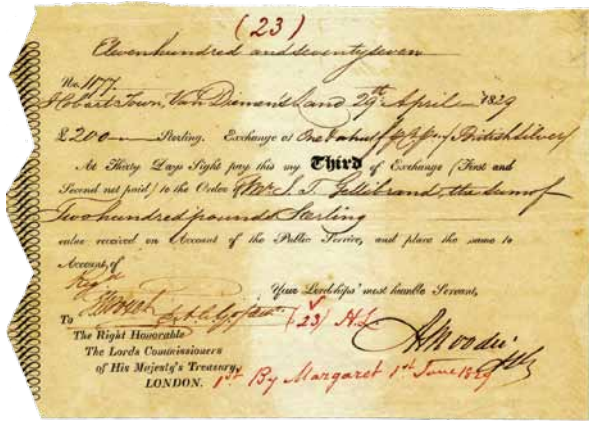 (23)
Elevenhundred and seventy seven
No. 1177.
Hobart Town, Van Diemen's Land 29th April 1829
£200 Sterling. Exchange at One & a half British Silver
At Thirty Days Sight pay this my Third of Exchange (First and
Second not paid) to the Order of Mr. J. T. Gellibrand, the sum of
Two hundred pounds Sterling
value received on Account of the Public Service, and place the same to
Account, of
Your Lordships' most humble Servant,
To
(23) H.L.
The Right Honorable
A Moodie
The Lords Commissioners
of His Majesty's Treasury,
LONDON.
1st By Margaret 1st June 1829